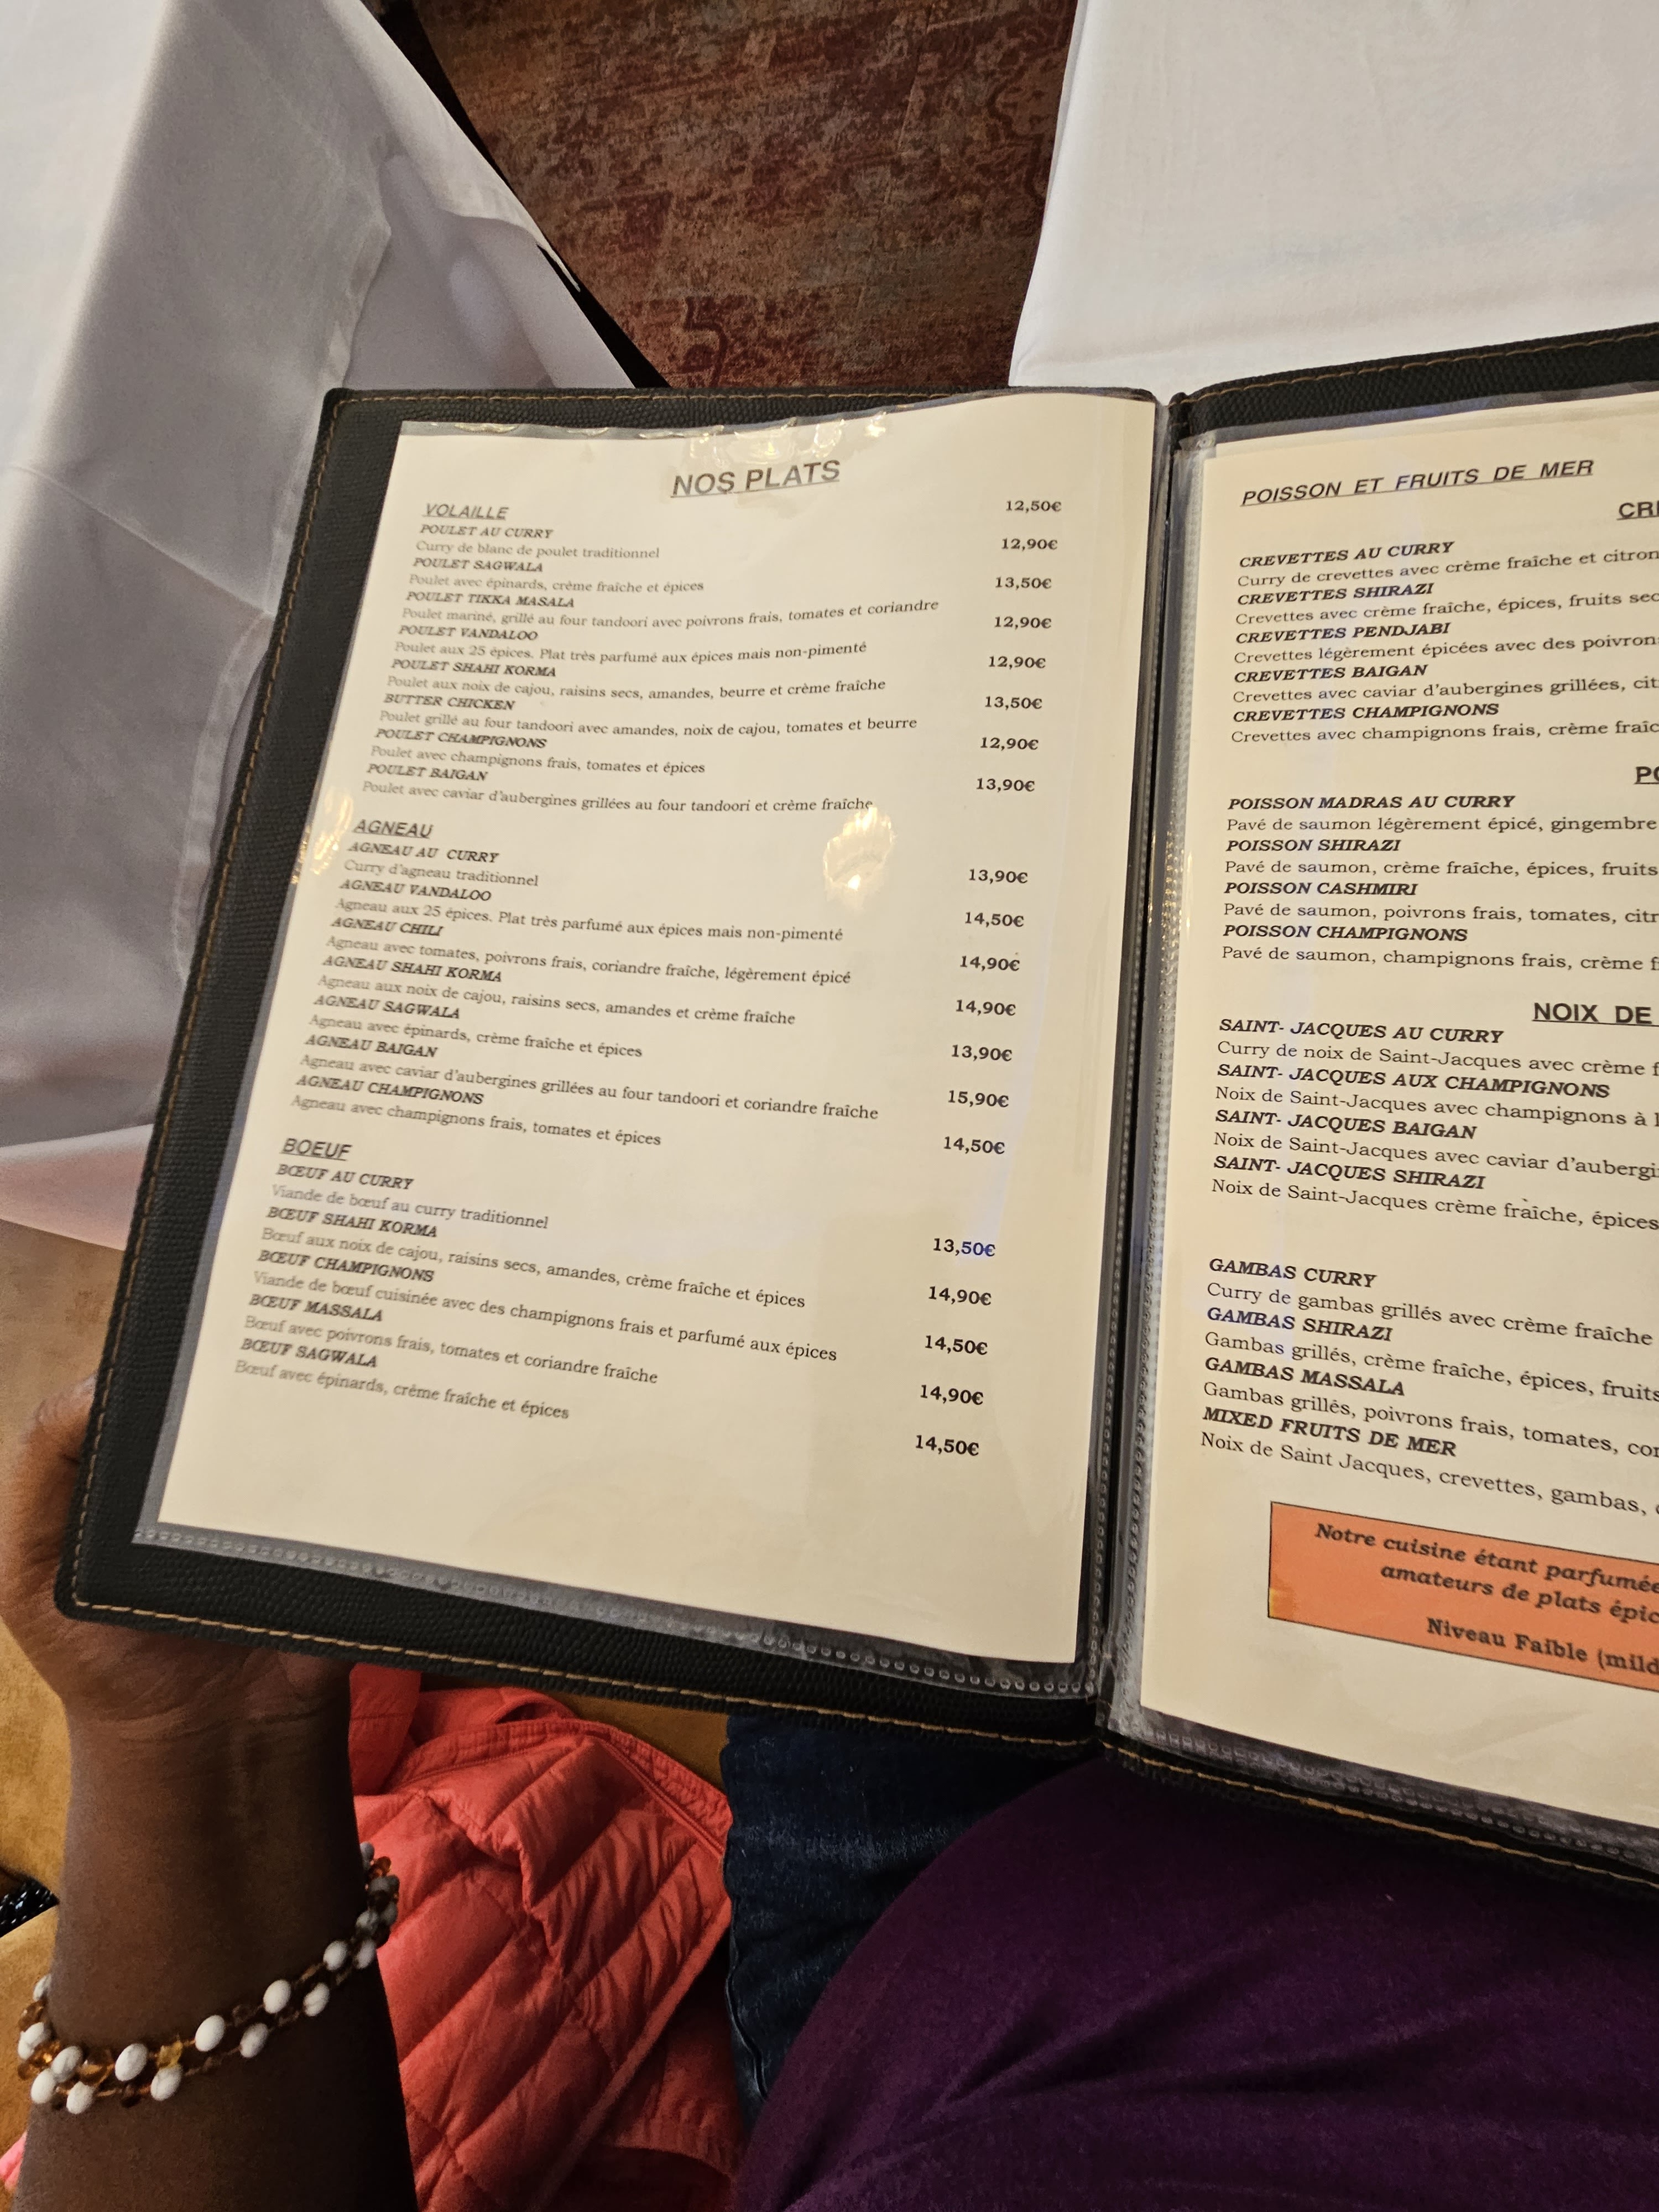 NOS PLATS
VOLAILLE
POULET AU CURRY 12,50€
Curry de blanc de poulet traditionnel
POULET SAGWALA 12,90€
Poulet avec épinards, crème fraîche et épices
POULET TIKKA MASALA 13,50€
Poulet mariné, grillé au four tandoori avec poivrons frais, tomates et coriandre
POULET VANDALOO 12,90€
Poulet aux 25 épices. Plat très parfumé aux épices mais non-pimenté
POULET SHAHI KORMA 12,90€
Poulet aux noix de cajou, raisins secs, amandes, beurre et crème fraîche
BUTTER CHICKEN 13,50€
Poulet grillé au four tandoori avec amandes, noix de cajou, tomates et beurre
POULET CHAMPIGNONS 12,90€
Poulet avec champignons frais, tomates et épices
POULET BAIGAN 13,90€
Poulet avec caviar d'aubergines grillées au four tandoori et crème fraîche
AGNEAU
AGNEAU AU CURRY 13,90€
Curry d'agneau traditionnel
AGNEAU VANDALOO 14,50€
Agneau aux 25 épices. Plat très parfumé aux épices mais non-pimenté
AGNEAU CHILI 14,90€
Agneau avec tomates, poivrons frais, coriandre fraîche, légèrement épicé
AGNEAU SHAHI KORMA 14,90€
Agneau aux noix de cajou, raisins secs, amandes et crème fraîche
AGNEAU SAGWALA 13,90€
Agneau avec épinards, crème fraîche et épices
AGNEAU BAIGAN 15,90€
Agneau avec caviar d'aubergines grillées au four tandoori et coriandre fraîche
AGNEAU CHAMPIGNONS 14,50€
Agneau avec champignons frais, tomates et épices
BOEUF
BŒUF AU CURRY 13,50€
Viande de bœuf au curry traditionnel
BŒUF SHAHI KORMA 14,90€
Bœuf aux noix de cajou, raisins secs, amandes, crème fraîche et épices
BŒUF CHAMPIGNONS 14,50€
Viande de bœuf cuisinée avec des champignons frais et parfumé aux épices
BŒUF MASSALA 14,90€
Bœuf avec poivrons frais, tomates et coriandre fraîche
BŒUF SAGWALA 14,50€
Bœuf avec épinards, crème fraîche et épices
POISSON ET FRUITS DE MER
CRE
CREVETTES AU CURRY
Curry de crevettes avec crème fraîche et citron
CREVETTES SHIRAZI
Crevettes avec crème fraîche, épices, fruits sec
CREVETTES PENDJABI
Crevettes légèrement épicées avec des poivron
CREVETTES BAIGAN
Crevettes avec caviar d'aubergines grillées, cit
CREVETTES CHAMPIGNONS
Crevettes avec champignons frais, crème fraîc
PO
POISSON MADRAS AU CURRY
Pavé de saumon légèrement épicé, gingembre
POISSON SHIRAZI
Pavé de saumon, crème fraîche, épices, fruits
POISSON CASHMIRI
Pavé de saumon, poivrons frais, tomates, citr
POISSON CHAMPIGNONS
Pavé de saumon, champignons frais, crème f
NOIX DE
SAINT- JACQUES AU CURRY
Curry de noix de Saint-Jacques avec crème f
SAINT- JACQUES AUX CHAMPIGNONS
Noix de Saint-Jacques avec champignons à l
SAINT- JACQUES BAIGAN
Noix de Saint-Jacques avec caviar d'aubergi
SAINT- JACQUES SHIRAZI
Noix de Saint-Jacques crème fraîche, épices
GAMBAS CURRY
Curry de gambas grillés avec crème fraîche
GAMBAS SHIRAZI
Gambas grillés, crème fraîche, épices, fruits
GAMBAS MASSALA
Gambas grillés, poivrons frais, tomates, cor
MIXED FRUITS DE MER
Noix de Saint Jacques, crevettes, gambas,
Notre cuisine étant parfumée
amateurs de plats épic
Niveau Faible (mild